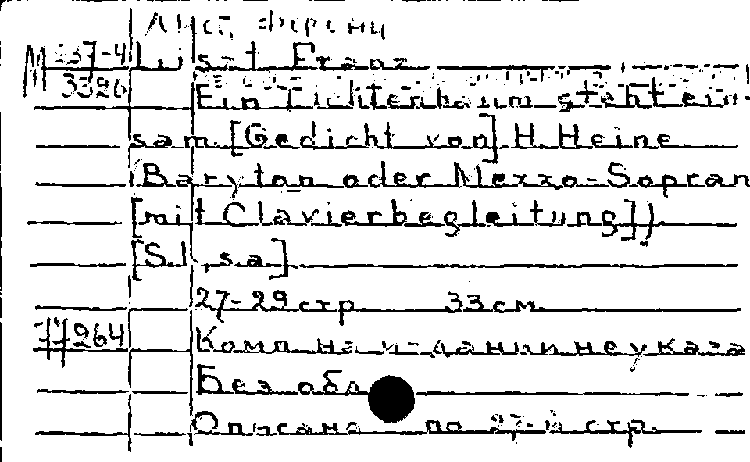 Лист, Ференц
М 237-4 Liszt Franz
3326 Ein Fichtenbaum steht ein-
sam [Gedicht von] H. Heine
(Baryton oder Mezzo-Sopran
[mit Clavierbegleitung])
[S.l., s.a.]
27-29 стр. 33 см.
77264 Комп. на издании не указа
Без обл.
Описано по 27-й стр.